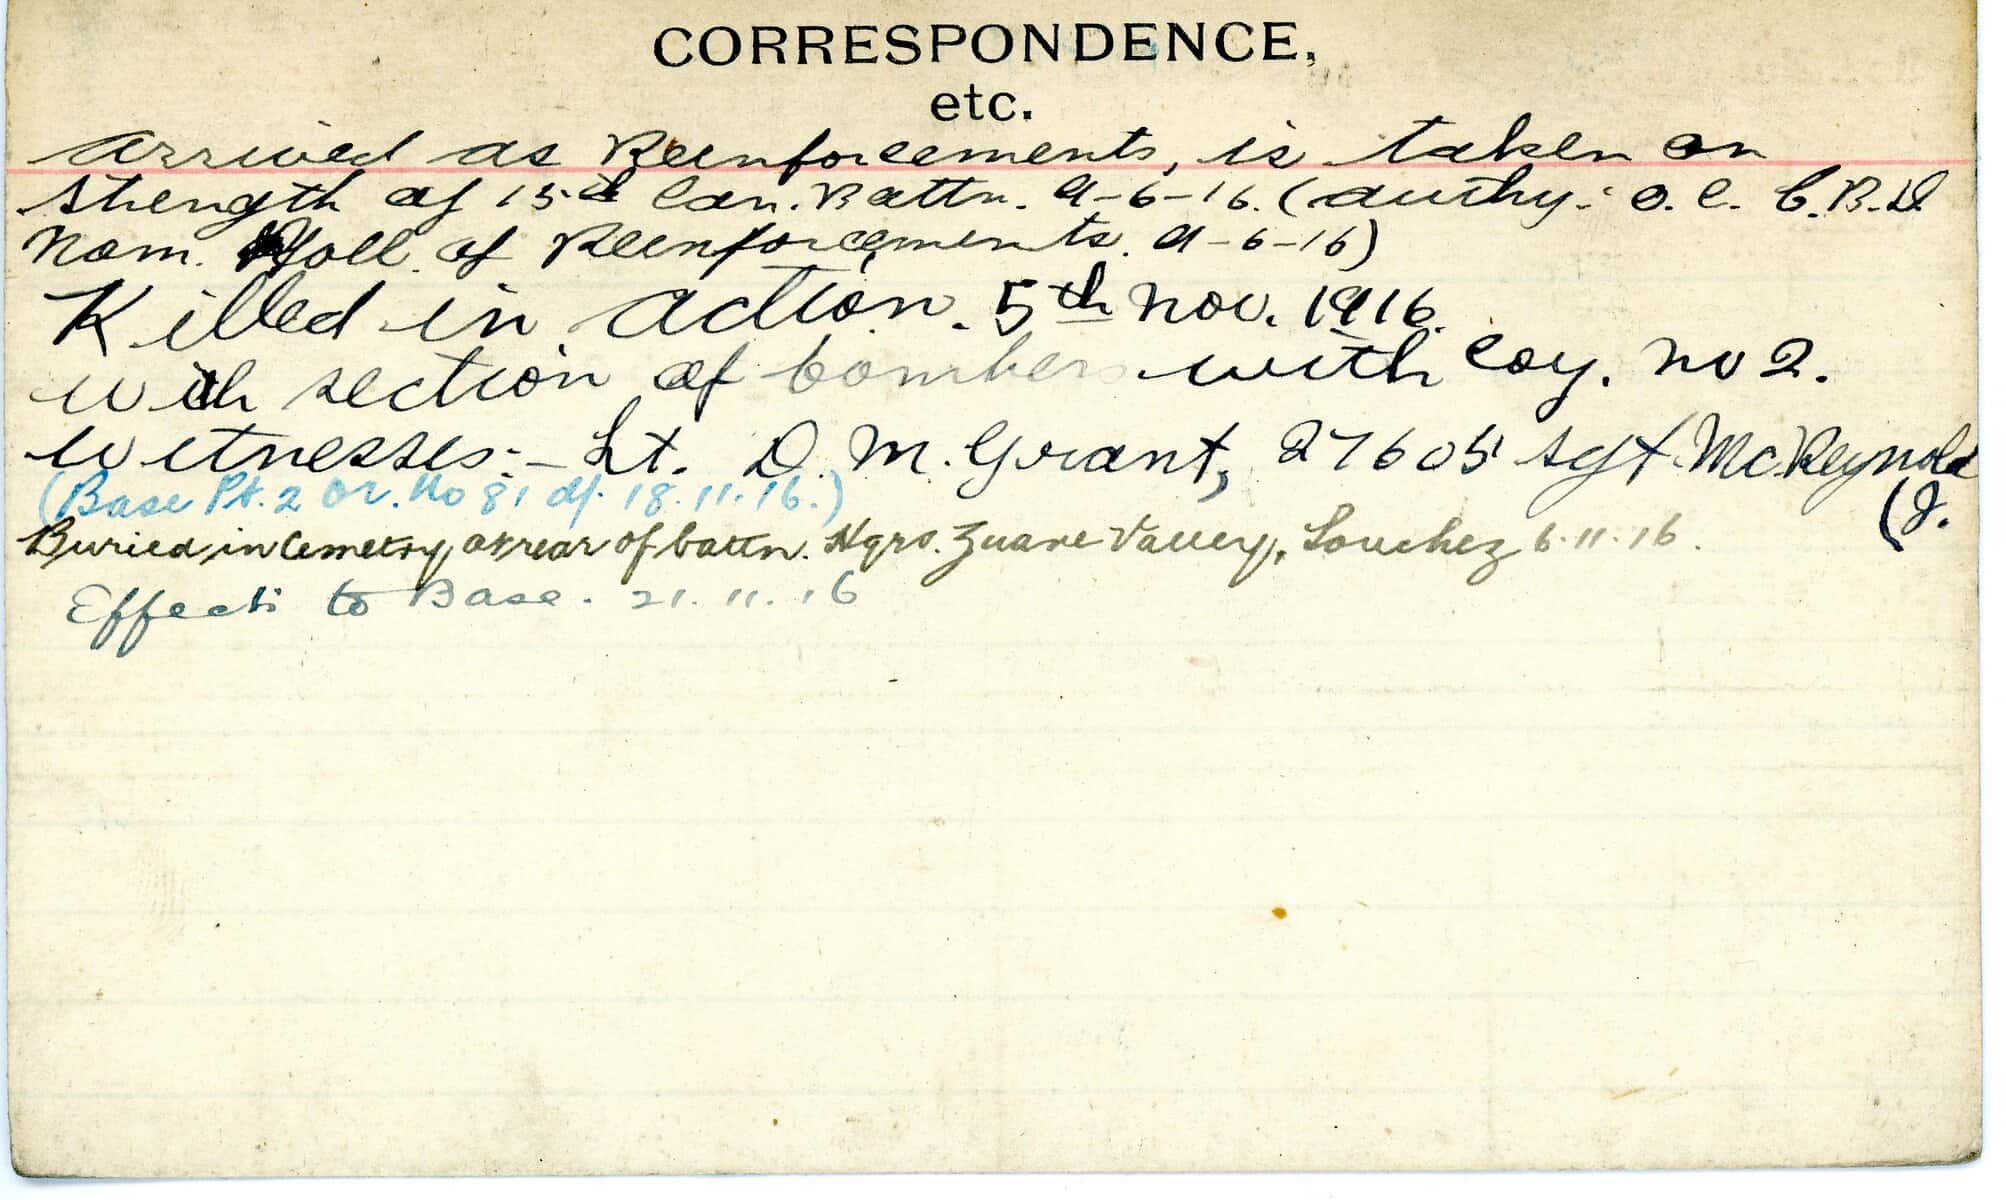 CORRESPONDENCE,
etc.
Arrived as Reenforcements, is taken on
strength of 15th Can. Battn. 9-6-16. (Authy: O. C. C.B.D
Nom. Roll. of Reenforcements. 9-6-16)
Killed in action. 5th Nov. 1916.
with section of bombers with Coy. No 2.
Witnesses:- Lt. D. M. Grant, 27605 Sgt. McReynold
(J.
(Base Pt. 2 Or. No 81 of. 18.11.16.)
Buried in Cemetry at rear of battn. Hqrs. Zuave Valley, Souchez 6.11.16.
Effects to Base. 21.11.16